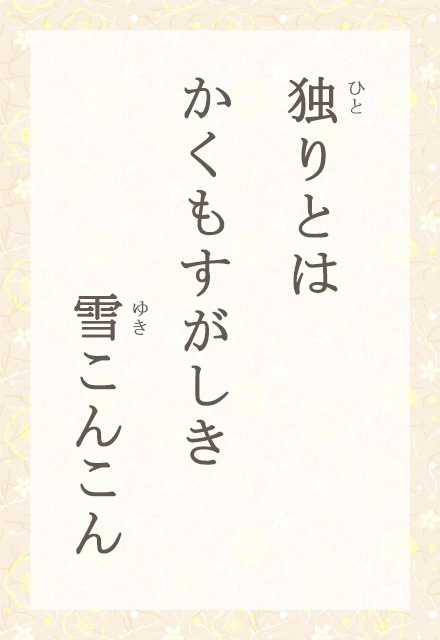 独りとは
かくもすがしき
雪こんこん
ひと
ゆき